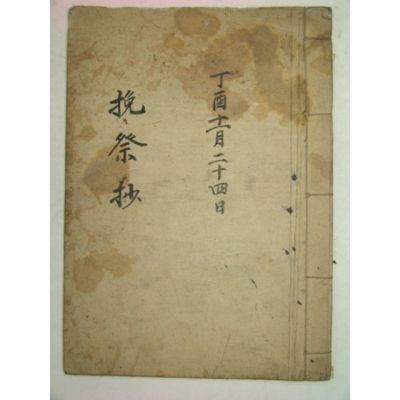 丁酉十一月二十四日
挽祭抄